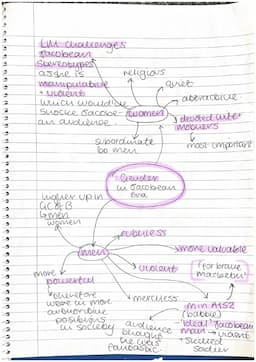 LM challenges
Jacobean
stereotypes
as she is
manipulative
+ violent
which would
shock Jacobe-
an audience.
religious
quiet
women
devoted wife +
mothers
most important
subordinate
to men
Gender
in Jacobean
era
higher up in
men
women
men
ruthless
more valuable
violent
"for brave
Macbeth"
more
powerful
therefore
were in more
positions
in society
merciless
audience
thought
he was
fantastic
in A1S2
ideal Jacobean
man